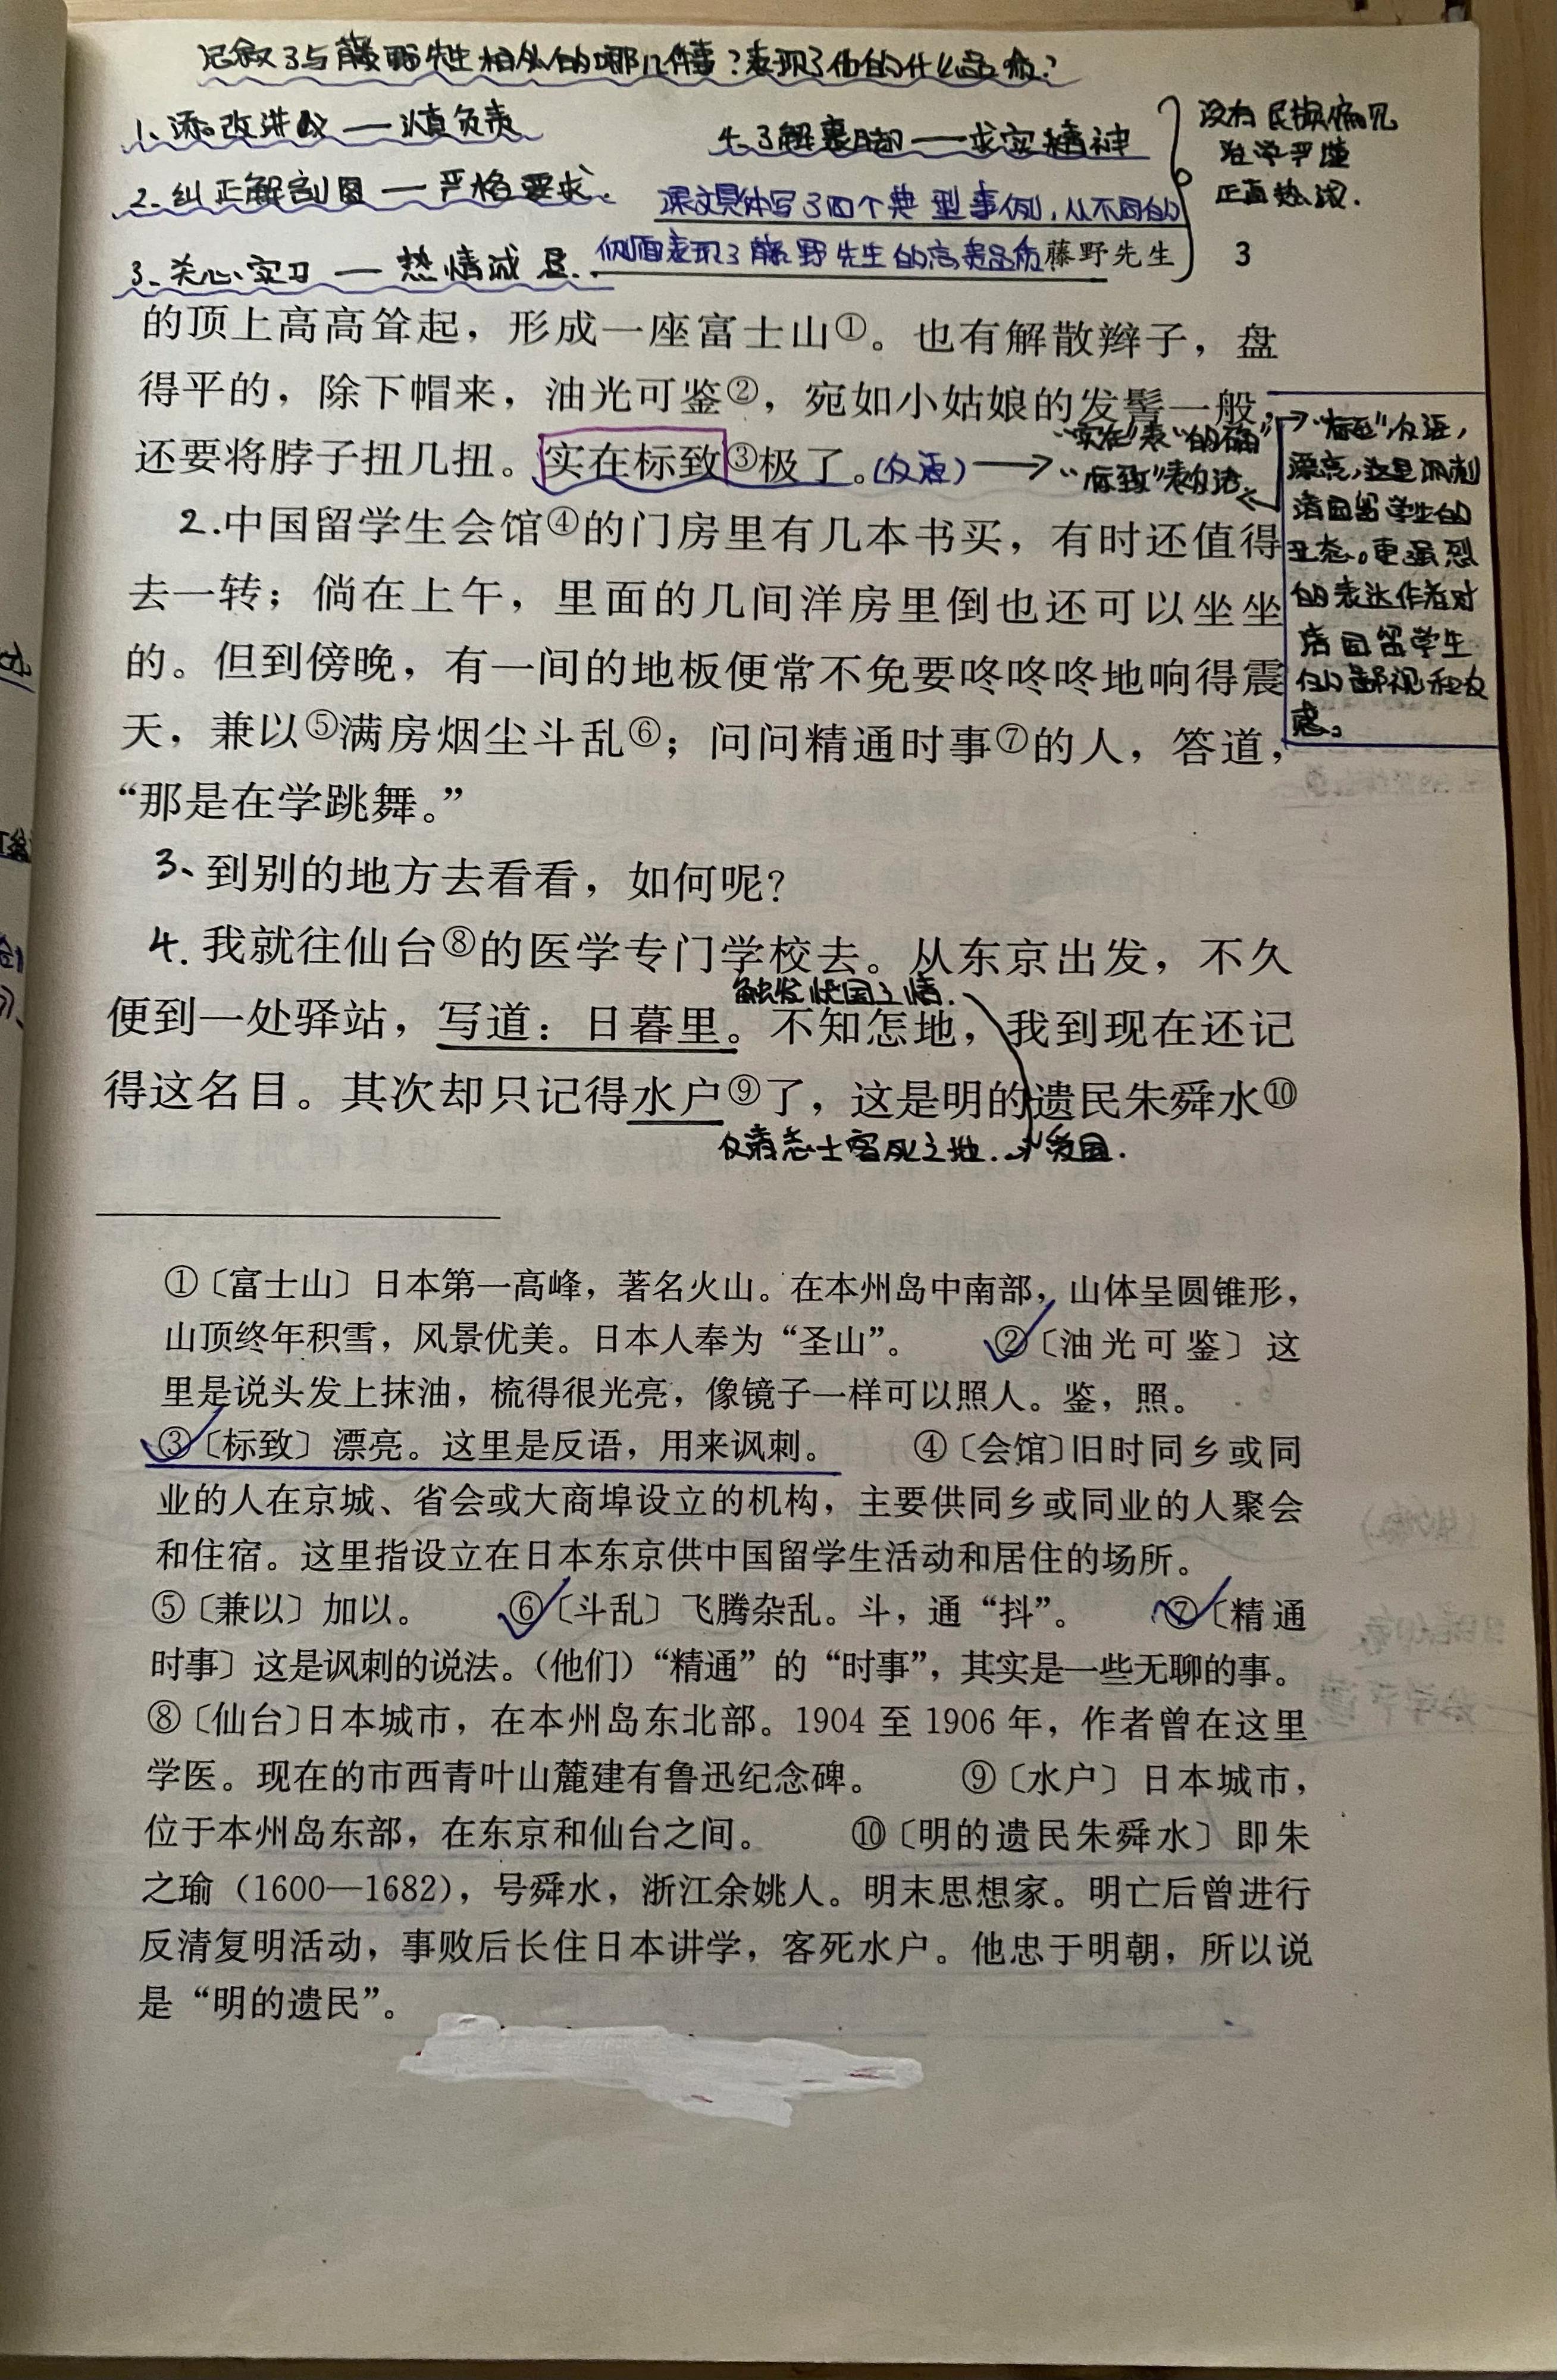 记叙了与藤野先生相处的哪几件事?表现了他的什么品质?
1、添改讲义 — 认真负责
4、了解裹脚 — 求实精神
没有民族偏见
治学严谨
正直热诚.
2、纠正解剖图 — 严格要求.
课文具体写了四个典型事例,从不同的
侧面表现了藤野先生的高贵品质
3、关心实习 — 热情诚恳.
藤野先生 3
的顶上高高耸起，形成一座富士山①。也有解散辫子，盘
得平的，除下帽来，油光可鉴②，宛如小姑娘的发髻一般，
还要将脖子扭几扭。实在标致③极了。(反语)
"实在"表"的确"
"标致"表
"标致"反语,
漂亮,这里讽刺
清国留学生的
丑态。更强烈
的表达作者对
清国留学生
们鄙视和反
感。
2.中国留学生会馆④的门房里有几本书买，有时还值得
去一转；倘在上午，里面的几间洋房里倒也还可以坐坐
的。但到傍晚，有一间的地板便常不免要咚咚咚地响得震
天，兼以⑤满房烟尘斗乱⑥；问问精通时事⑦的人，答道，
“那是在学跳舞。”
3、到别的地方去看看，如何呢？
4.我就往仙台⑧的医学专门学校去。从东京出发，不久
触发忧国之情.
便到一处驿站，写道：日暮里。不知怎地，我到现在还记
得这名目。其次却只记得水户⑨了，这是明的遗民朱舜水⑩
反清志士客死之地. 爱国.
①〔富士山〕日本第一高峰，著名火山。在本州岛中南部，山体呈圆锥形，
山顶终年积雪，风景优美。日本人奉为“圣山”。 ②〔油光可鉴〕这
里是说头发上抹油，梳得很光亮，像镜子一样可以照人。鉴，照。
③〔标致〕漂亮。这里是反语，用来讽刺。 ④〔会馆〕旧时同乡或同
业的人在京城、省会或大商埠设立的机构，主要供同乡或同业的人聚会
和住宿。这里指设立在日本东京供中国留学生活动和居住的场所。
⑤〔兼以〕加以。 ⑥〔斗乱〕飞腾杂乱。斗，通“抖”。 ⑦〔精通
时事〕这是讽刺的说法。（他们）“精通”的“时事”，其实是一些无聊的事。
⑧〔仙台〕日本城市，在本州岛东北部。1904 至 1906 年，作者曾在这里
学医。现在的市西青叶山麓建有鲁迅纪念碑。 ⑨〔水户〕日本城市，
位于本州岛东部，在东京和仙台之间。 ⑩〔明的遗民朱舜水〕即朱
之瑜（1600—1682），号舜水，浙江余姚人。明末思想家。明亡后曾进行
反清复明活动，事败后长住日本讲学，客死水户。他忠于明朝，所以说
是“明的遗民”。